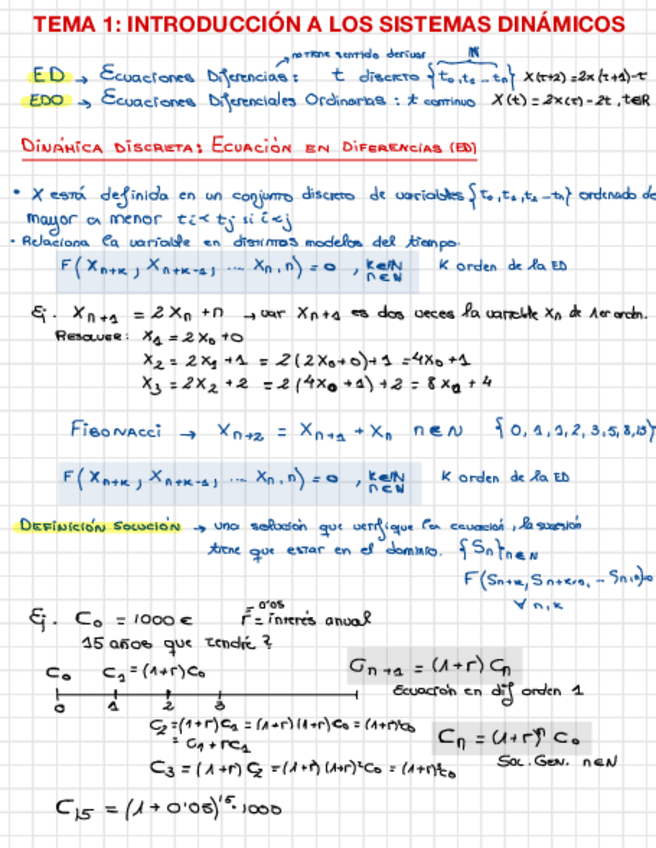 TEMA 1: INTRODUCCIÓN A LOS SISTEMAS DINÁMICOS
no tiene sentido derivar IN
ED → Ecuaciones Diferencias: t discreto {t₀,t₁...tₙ} X(t+2)=2x(t+1)-t
EDO → Ecuaciones Diferenciales Ordinarias: t continuo X(t)=2x(t)-2t, t∈R
DINÁMICA DISCRETA: ECUACIÓN EN DIFERENCIAS (ED)
• X está definida en un conjunto discreto de variables {t₀,t₁,t₂...tₙ} ordenado de
mayor a menor ti<tj si i<j
• Relaciona la variable en distintos modelos del tiempo.
F(Xₙ₊ₖ, Xₙ₊ₖ₋₁, ... Xₙ, n) = 0, k∈IN n∈IN K orden de la ED
Ej. Xₙ₊₁ = 2Xₙ + n → var Xₙ₊₁ es dos veces la variable Xₙ de 1er ordn.
Resolver: X₁ = 2X₀ + 0
X₂ = 2X₁ + 1 = 2(2X₀+0)+1 = 4X₀+1
X₃ = 2X₂ + 2 = 2(4X₀+1)+2 = 8X₀+4
FIBONACCI → Xₙ₊₂ = Xₙ₊₁ + Xₙ n∈N {0,1,1,2,3,5,8,13}
F(Xₙ₊ₖ, Xₙ₊ₖ₋₁, ... Xₙ, n) = 0, k∈IN n∈IN K orden de la ED
DEFINICIÓN SOLUCIÓN → una solución que verifique la ecuación, la sucesión
tiene que estar en el dominio. {Sₙ}ₙ∈N
∀ n,k
Ej. C₀ = 1000 € r = interés anual = 0'05
15 años que tendré?
C₀ C₁=(1+r)C₀ Cₙ₊₁ = (1+r)Cₙ
Ecuación en dif orden 1
0 1 2 3
C₂=(1+r)C₁ = (1+r)(1+r)C₀ = (1+r)²C₀
= C₁+rC₁
Cₙ = (1+r)ⁿ C₀
Sol. Gen. n∈N
C₃ = (1+r)C₂ = (1+r)(1+r)²C₀ = (1+r)³C₀
C₁₅ = (1+0'05)¹⁵·1000